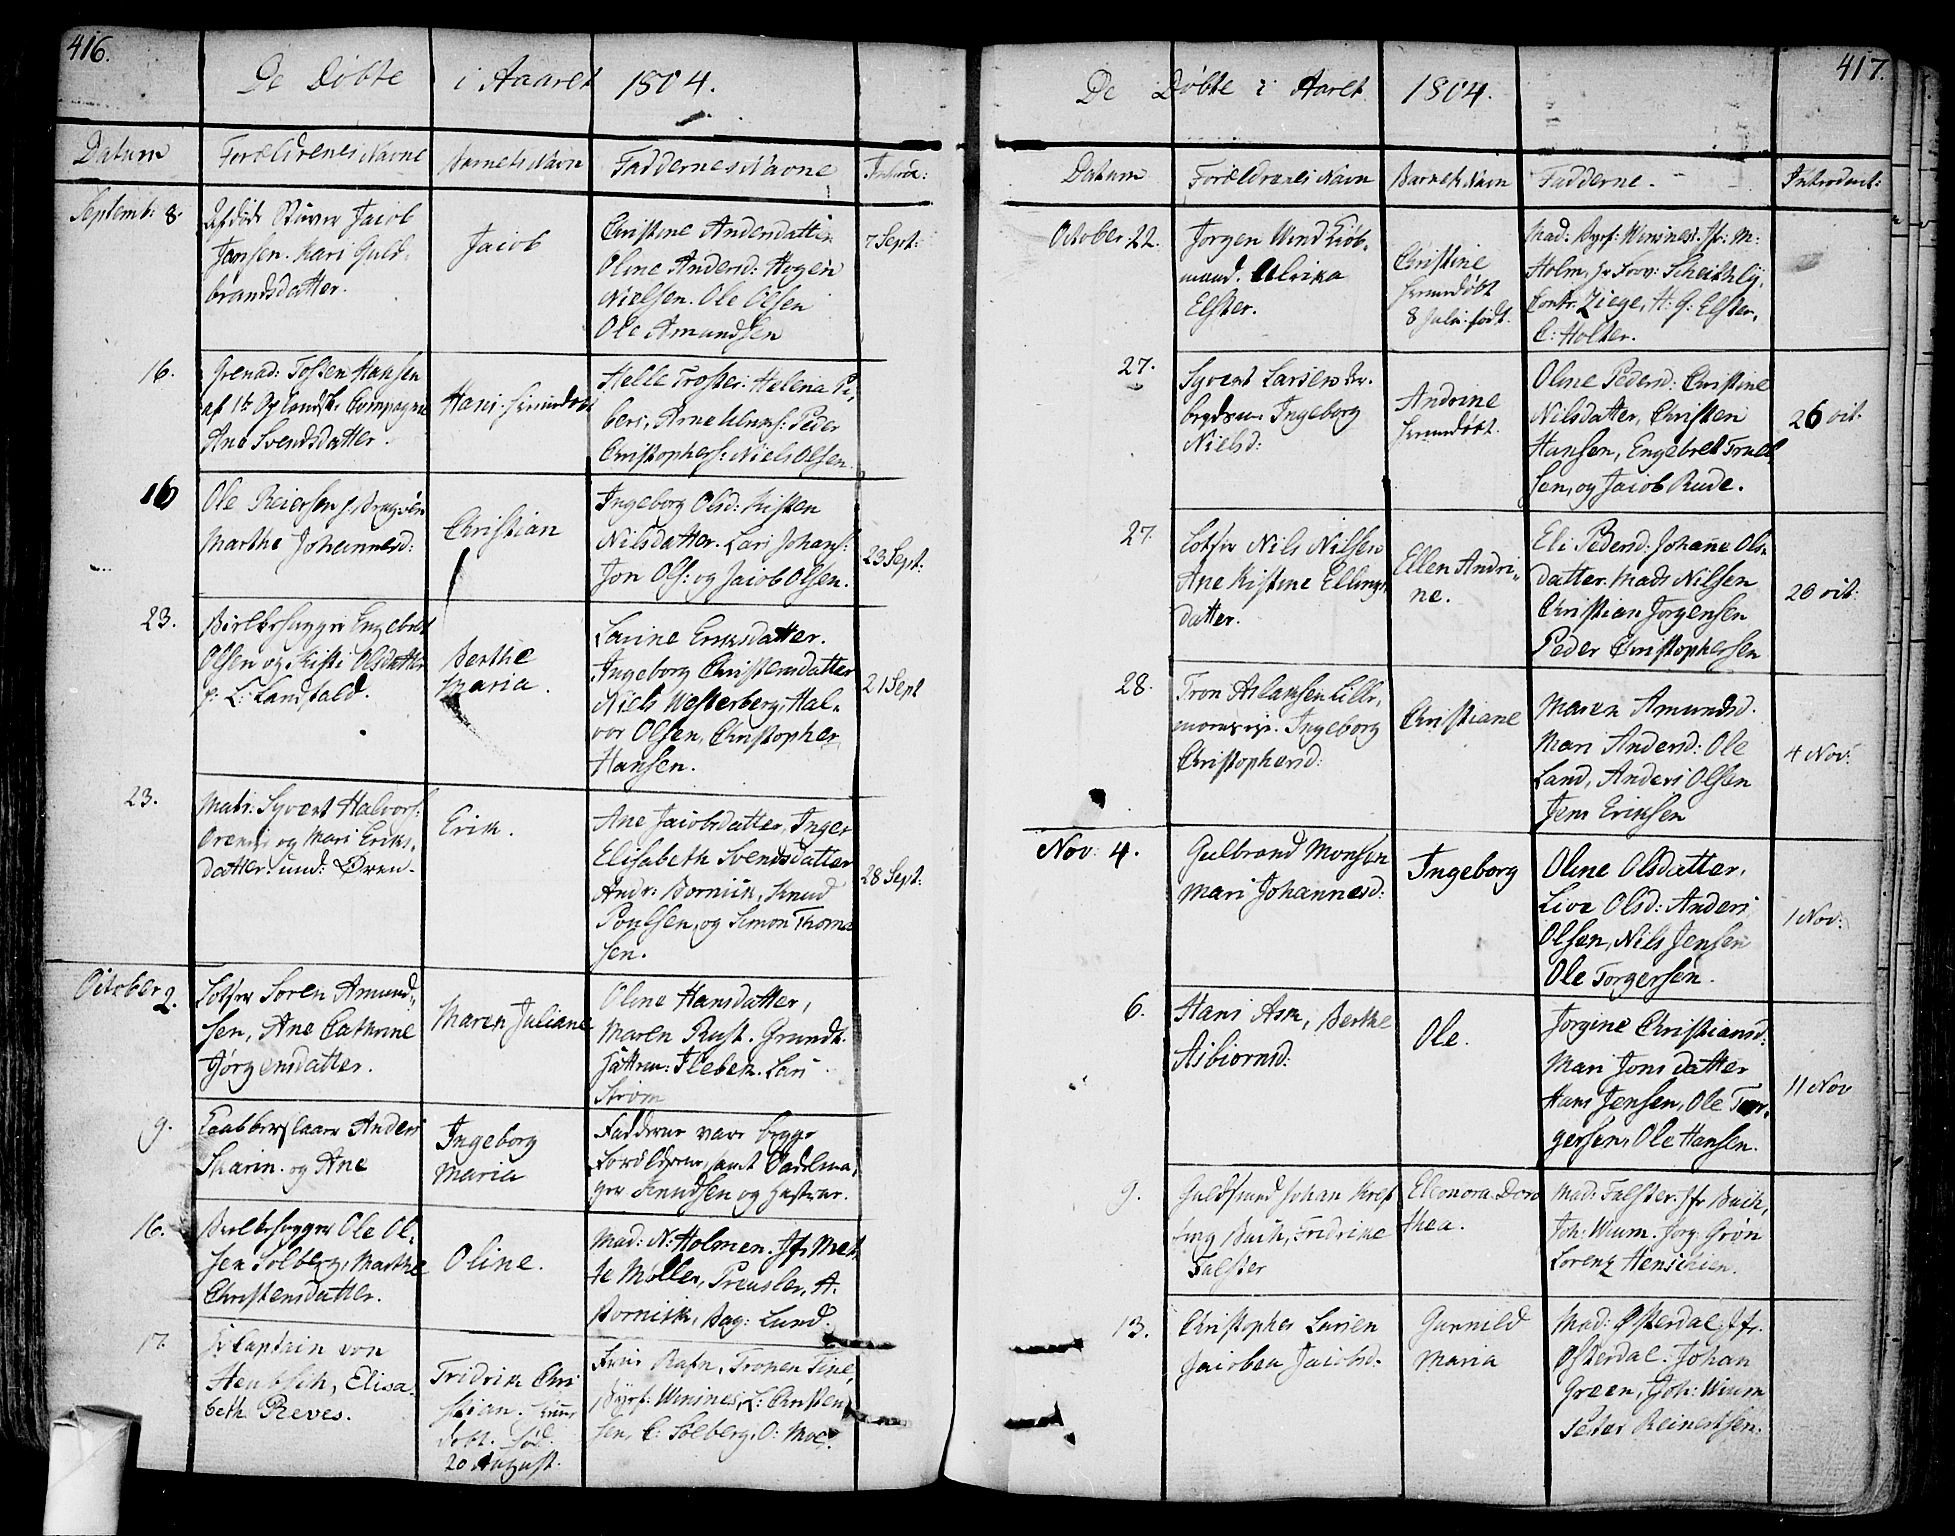 416.
De Döbte i Aaaret 1804.
Datum Forældrenes Navne Barnets Navn Faddernes Navne Introd:
Septemb: 8. Jacob
Jansen. Kari Guld-
brandsdatter.
Jacob
Christine Andersdatter
Oline Andersd: Aagen
Nielsen. Ole Olsen
Ole Amundsen
7 Sept:
16. Grenad: Tosten Hansen
af 1te Oplandsk Compagnie
Ane Svendsdatter.
Hans. hiemdøbt
Helle Troster. Helena Pe,
Peder
Christophers: Niels Olsen.
16 Ole Reiersen
Marthe Johannesd:
Christian
Ingeborg Olsd: Kisten
Nilsdatter. Lars Johans:
Jon Ols: og Jacob Olsen.
23 Sept:
23. Engebret
Olsen og Kisti Olsdatter
p. L: Landfald.
Berthe
Maria.
Lovine Eriksdatter.
Ingeborg Christensdatter
Niels Westerberg, Hal-
vor Olsen, Christopher
Hansen.
21 Sept
23. Matr: Syvert Halvors:
og Mari Eriks,
datter. und: Øren.
Erik.
Ane Jacobsdatter, Inger
Elisabeth Svendsdatter
Andr: Bornich, Knud
Poulsen, og Simon Thoma
sen.
28 Sept:
October 2. Lotser Soren Amund-
sen, Ane Cathrine
Jörgensdatter.
Maren Juliane
Oline Hansdatter,
Maren Rust. Grundt.
Ilebek. Lars
Strøm
9. Kaabberslaer Anders
Skarin. og Ane
Ingeborg
Maria
Fadderne vare begge
Forældrene, samt
Knudsen og Hustrue.
16. Ole Ol-
sen Solberg, Marthe
Christensdatter.
Oline.
Mad: N: Holmen. Jfr Met
te Møller, Preusler, A.
Bornich, Lund.
17. Hr Captain von
Hentsch, Elisa,
beth Reves.
Fridrik Chri
stian. hiem
døbt. fød.
20 August.
Frue Rafn,
L: Christen
sen, C: Solberg, O: Moe.
417.
De Döbte i Aaret 1804.
Datum Forældrenes Navn Barnets Navn Fadderne. Introduct:
October 22. Jorgen Wind Kiöb-
mand. Ulrika
Elster.
Christine
hiemdöbt
8 Julii. født.
Mad: Jfr: M:
Holm, hr
Contr. Ziege, H: G: Elster,
C: Holter.
27. Syvert Larsen
Ingeborg
Nielsd:
Andrine
hiemdøbt.
Oline Pedersd: Christine
Nilsdatter, Christen
Hansen, Engebret Truel
sen, og Jacob Rude.
26 oct.
27. Lotser Nils Nilsen
Ane Kistine Ellings
datter.
Ellen Andri-
ne.
Eli Pedersd: Johane Ols-
datter. Mads Nilsen
Christian Jorgensen
Peder Christophersen
20 oct:
28. Tron Aslaksen Lille,
Ingeborg
Christophersd:
Christiane
Maren Amundsd.
Mari Andersd: Ole
Land, Anders Olsen
Jens Eriksen
4 Nov:
Nov: 4. Gulbrand Monsen
Mari Johannesd:
Ingeborg
Oline Olsdatter,
Live Olsd: Anders
Olsen, Nils Jensen
Ole Torgersen.
1 Nov:
6. Hans Ask, Berthe
Asbiornsd:
Ole.
Jorgine Christiansd:
Mari Jonsdatter
Hans Jensen, Ole Tor-
gersen, Ole Hansen.
11 Nov
9. Guldsmed Johan
Bach, Fridrikke
Falster
Eleonora Doro
thea.
Mad: Falster. Jfr Bach,
Joh: Wium. Jorg: Grøn
Lorenz Henschien.
13. Christopher Larsen
Jacobea Jacobsd.
Gunnild
Maria
Mad: Østerdal: Jfr.
Østerdal. Johan
Green, Joh: Wium
Peter Reinertsen.